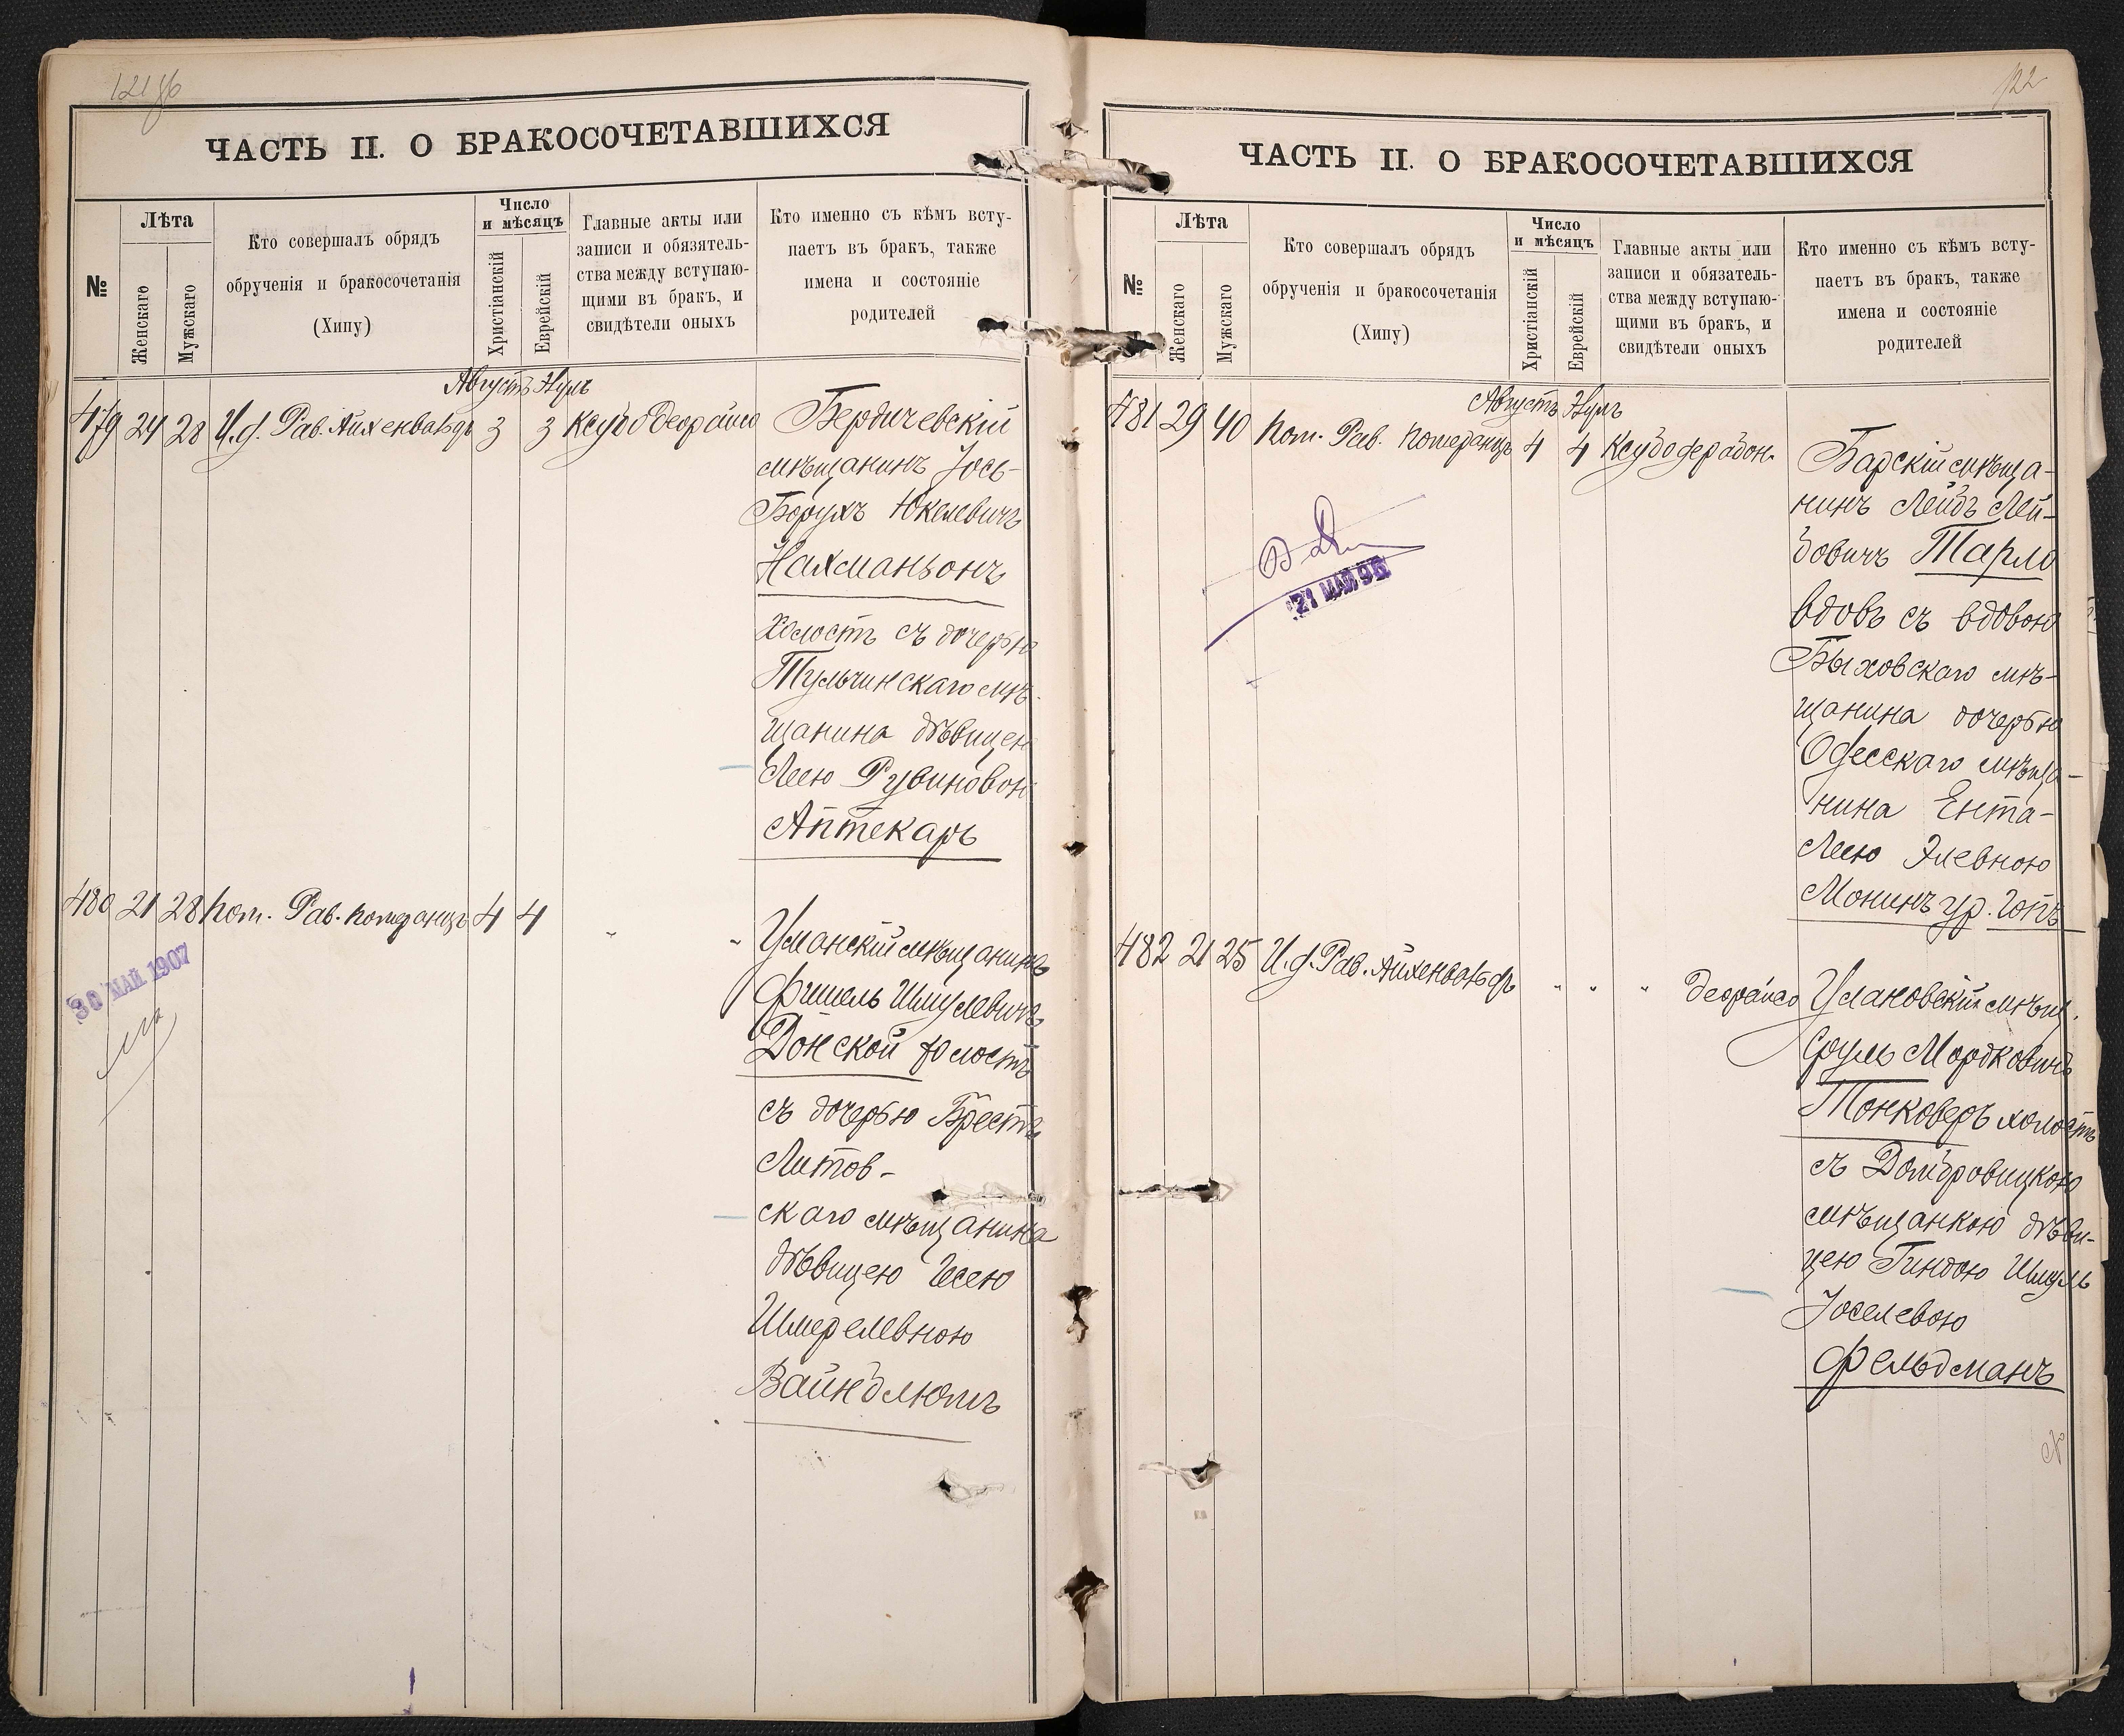 ЧАСТЬ II. О БРАКОСОЧЕТАВШИХСЯ
№
Лѣта
Женскаго
Мужскаго
Кто совершалъ обрядъ
обрученія и бракосочетанія
(Хипу)
Число
и мѣсяцъ
Христіанскій
Еврейскій
Главные акты или
записи и обязятель-
ства между вступаю-
щими въ бракъ, и
свидѣтели оныхъ
Кто именно съ кѣмъ всту-
паетъ въ бракъ, также
имена и состояніе
родителей
Августъ
479 24 28 И.д. Рав. Айхенвальдъ 3 3
Бердичевскій
мѣщанинъ Іось-
Борухъ Юкелевичъ
Нахманьонъ
холостъ съ дочерью
Тульчинскаго мѣ-
щанина дѣвицею
Леею Рувиновою
Аптекарь
480 21 28 Пом. Рав. Померанцъ 4 4 " "
Уманскій мѣщанинъ
Фишель Шмулевичъ
Донской холостъ
съ дочерью Брестъ
Литов-
скаго мѣщанина
дѣвицею Гесею
Шмерелевною
Вайнблютъ
30 МАЙ 1907
122
ЧАСТЬ II. О БРАКОСОЧЕТАВШИХСЯ
№
Лѣта
Женскаго
Мужскаго
Кто совершалъ обрядъ
обрученія и бракосочетанія
(Хипу)
Число
и мѣсяцъ
Христіанскій
Еврейскій
Главные акты или
записи и обязатель-
ства между вступаю-
щими въ бракъ, и
свидѣтели оныхъ
Кто именно съ кѣмъ всту-
паетъ въ бракъ, также
имена и состояніе
родителей
Августъ
481 29 40 Пом. Рав. Померанцъ 4 4
Барскій мѣща-
нинъ Лейбъ Лей-
бовичъ Тарло
вдовъ съ вдовою
Быховскаго мѣ-
щанина дочерью
Одесскаго мѣща-
нина Ента-
Леею Элевною
Монинъ ур. Гопъ
21 МАЙ 96
482 21 25 И.д. Рав. Айхенвальдъ " " "
Улановскій мѣщ.
Сруль Мордковичъ
Тонконогъ холостъ
съ Домбровицкою
мѣщанкою дѣви-
цею Гиндою Шмуль
Іоселевою
Фельдманъ